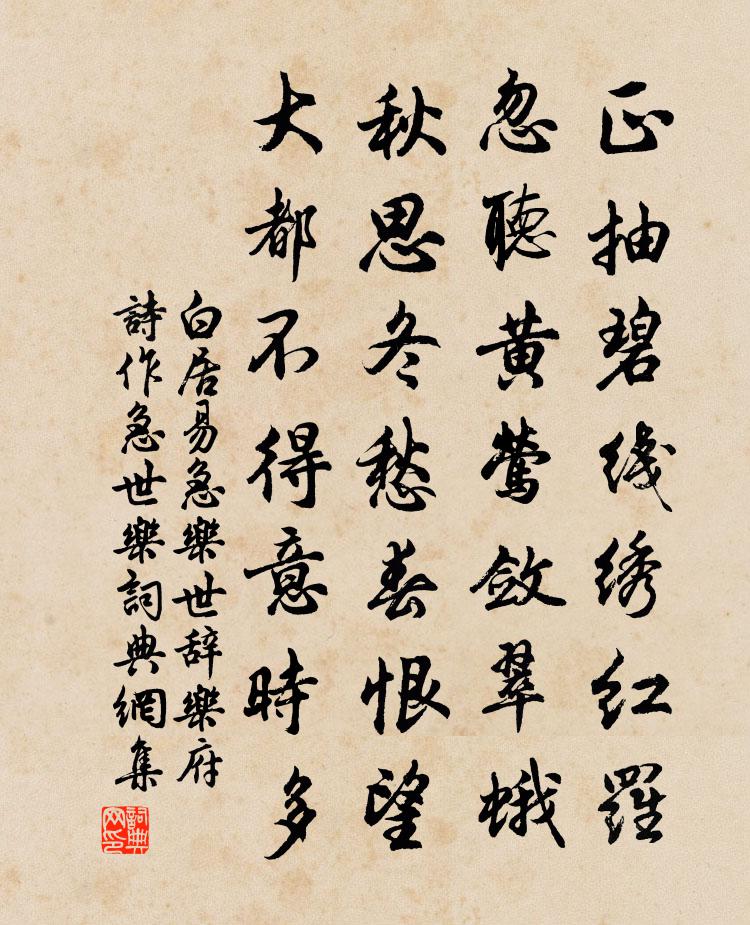 正抽碧线绣红羅
忽聴黄莺敛翠蛾
秋思冬愁春恨望
大都不得意時多
白居易急樂世辞樂府
詩作急世樂詞典網集
詞典网印